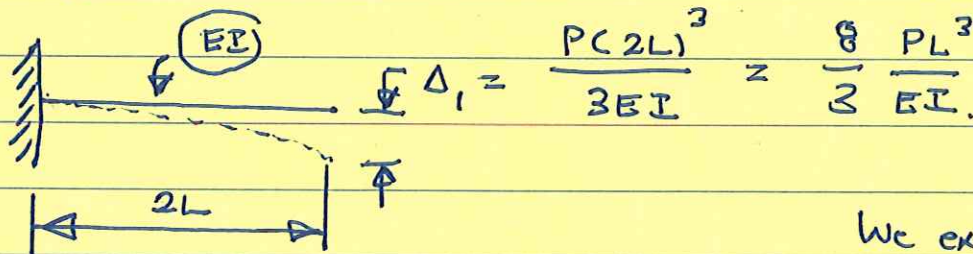 EI
Δ₁ = P(2L)³ / 3EI = 8/3 PL³/EI.
2L
We ex